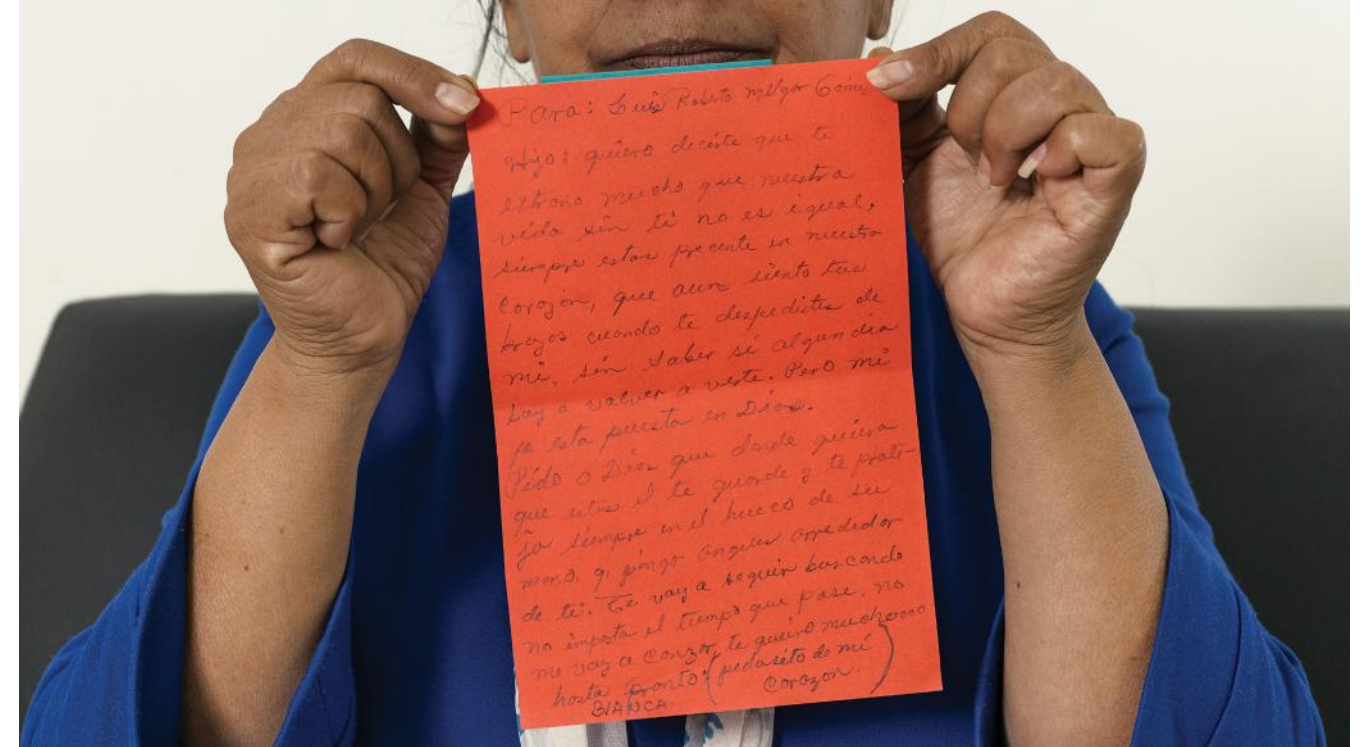 Para: Luis Roberto Melgar Góm
Hijo: quiero decirte que te
extraño mucho que nuestra
vida sin ti no es igual,
siempre estas precente en nuestro
corazón, que aun siento tus
brazos cuando te despedistes de
mi, sin saber si algun dia
voy a volver a verte. Pero mi
fe esta puesta en Dios.
Pido a Dios que donde quiera
que estes el te guarde y te prote-
ja siempre en el hueco de su
mano, y pongo angeles arrededor
de ti. Te voy a seguir buscando
no importa el tiempo que pase, no
me voy a canzar, te quiero muchoooo
hasta pronto: (pedasito de mi
corazon.)
BIANCA